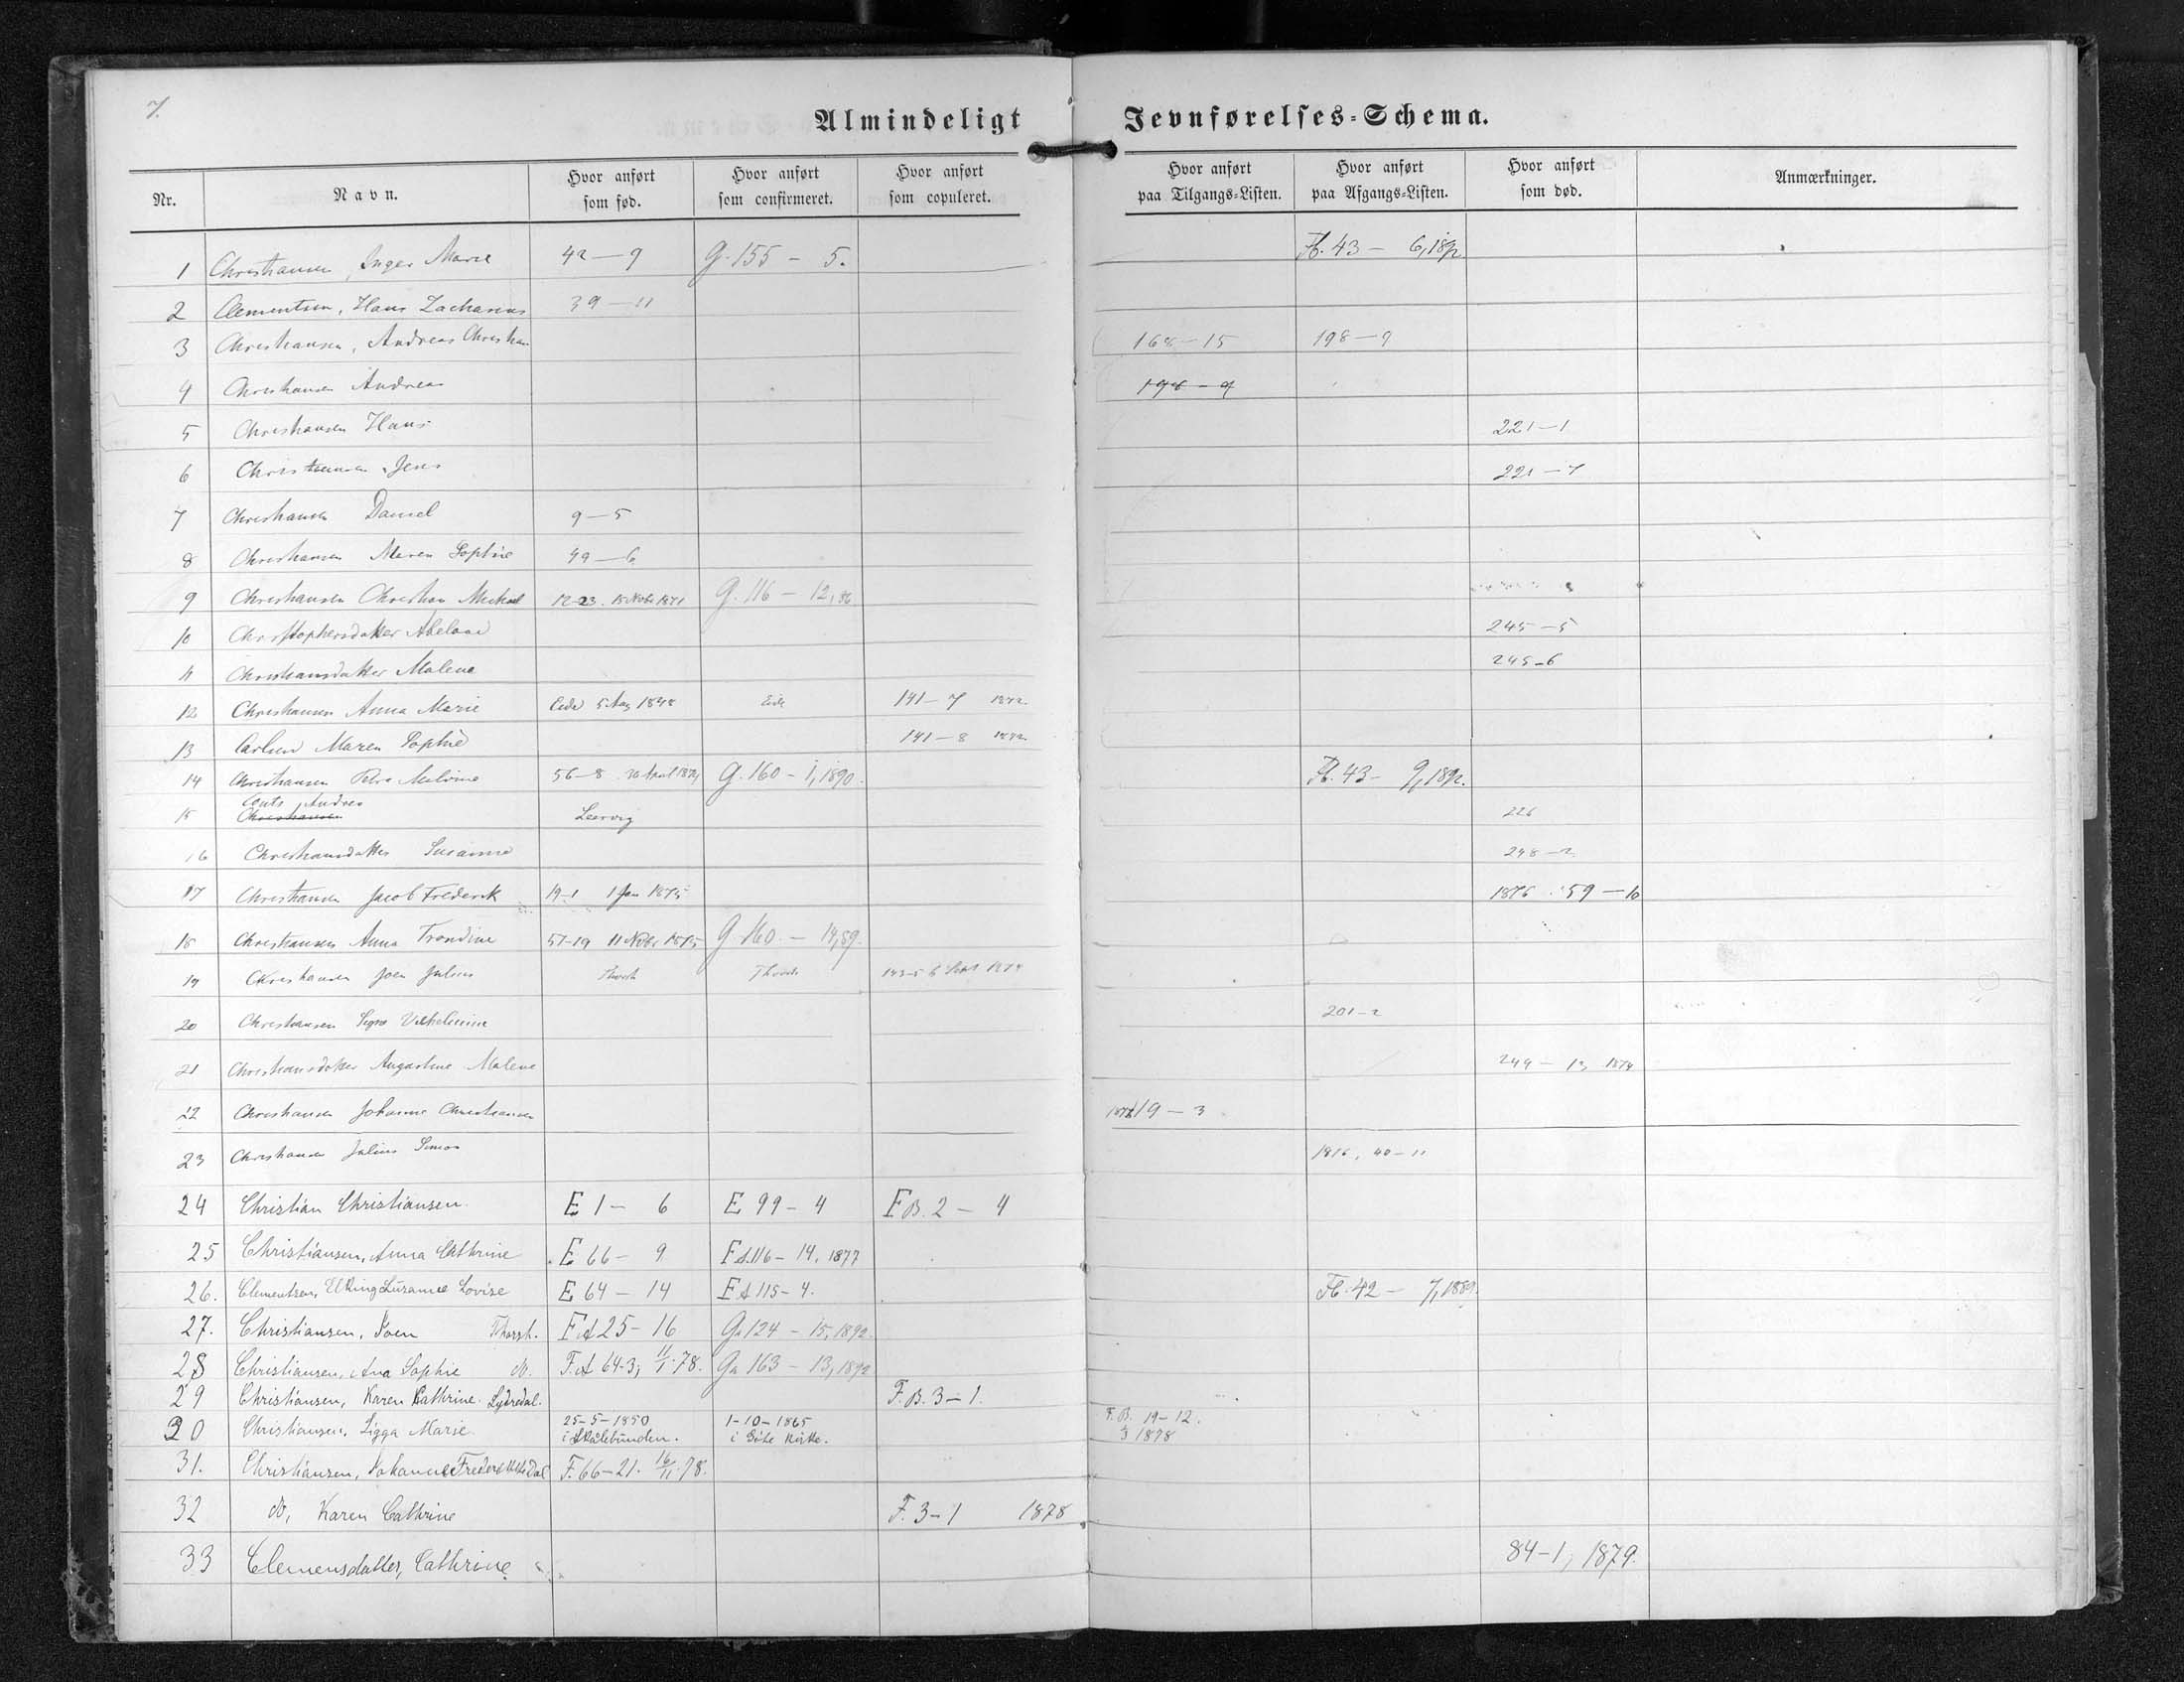 7.
Almindeligt Jevnførelses-Schema.
Nr. Navn. Hvor anført som fød. Hvor anført som confirmeret. Hvor anført som copuleret. Hvor anført paa Tilgangs-Listen. Hvor anført paa Afgangs-Listen. Hvor anført som død. Anmærkninger.
1 Christiansen, Inger Marie 42-9 G. 155 - 5. 43 - 6,
2 Clementsen, Hans Zacharius 39-11
3 Christiansen, Andreas Christian 168-15 198-9
4 Christiansen Andreas 198-9
5 Christiansen Hans 221-1
6 Christiansen Jens 221-7
7 Christiansen Daniel 9-5
8 Christiansen Maren Sophie 49-6
9 Christiansen Christian Michael 12-23. 15 Novbr 1871 G. 116 - 12, 86
10 Christophersdatter 245-5
11 Christiansdatter Malene 245-6
12 Christiansen Anna Marie Eide 5 Aug 1848 Eide 141-7 1872
13 Maren Sophie 141-8 1872
14 Christiansen Petra 56-8 G. 160 - 1, 1890. 43 - 9, 1892.
15 Andrea Christiansen Leervig 226
16 Christiansdatter Susanne 248-2
17 Christiansen Jacob Frederik 19-1 1 Jan 1875 1876 59-10
18 Christiansen Anna Trondine 57-19 11 Novbr 1875 G. 160 - 14, 89.
19 Christiansen Joen Julius 143-5 6 1874
20 Christiansen Vilhelmine 201-2
21 Christiansdatter Augustine Malene 249 - 13 1874
22 Christiansen Johanne Christiansen 19-3
23 Christiansen Julius Simon 1876, 40-11
24 Christian Christiansen. E 1 - 6 E 99 - 4 F.B. 2 - 4
25 Christiansen, Anna Cathrine E 66 - 9 F A. 116 - 14, 1877
26. Clementsen, Susanne Lovise E 64 - 14 F A 115 - 4. 42 - 7, 1889.
27. Christiansen, Joen Thorsh. F A 25-16 Ga 124 - 15, 1892.
28 Christiansen, Ana Sophie do. F. A 64-3, 11/1 78. Ga 163 - 13, 1892
29 Christiansen, Karen Kathrine. F. B. 3-1.
30 Christiansen, Sigga Marie 25-5-1850 i Skålebunden. 1-10-1865 i Göte Kirke. F. B. 19-12. 3 1878
31. Christiansen, Johanne F. 66-21. 16/11 78.
32 do, Karen Cathrine F. 3-1 1878
33 Clemensdatter, Cathrine 84-1, 1879.